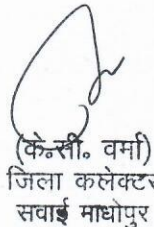 (के॰सी॰ वर्मा)
जिला कलेक्टर
सवाई माधोपुर